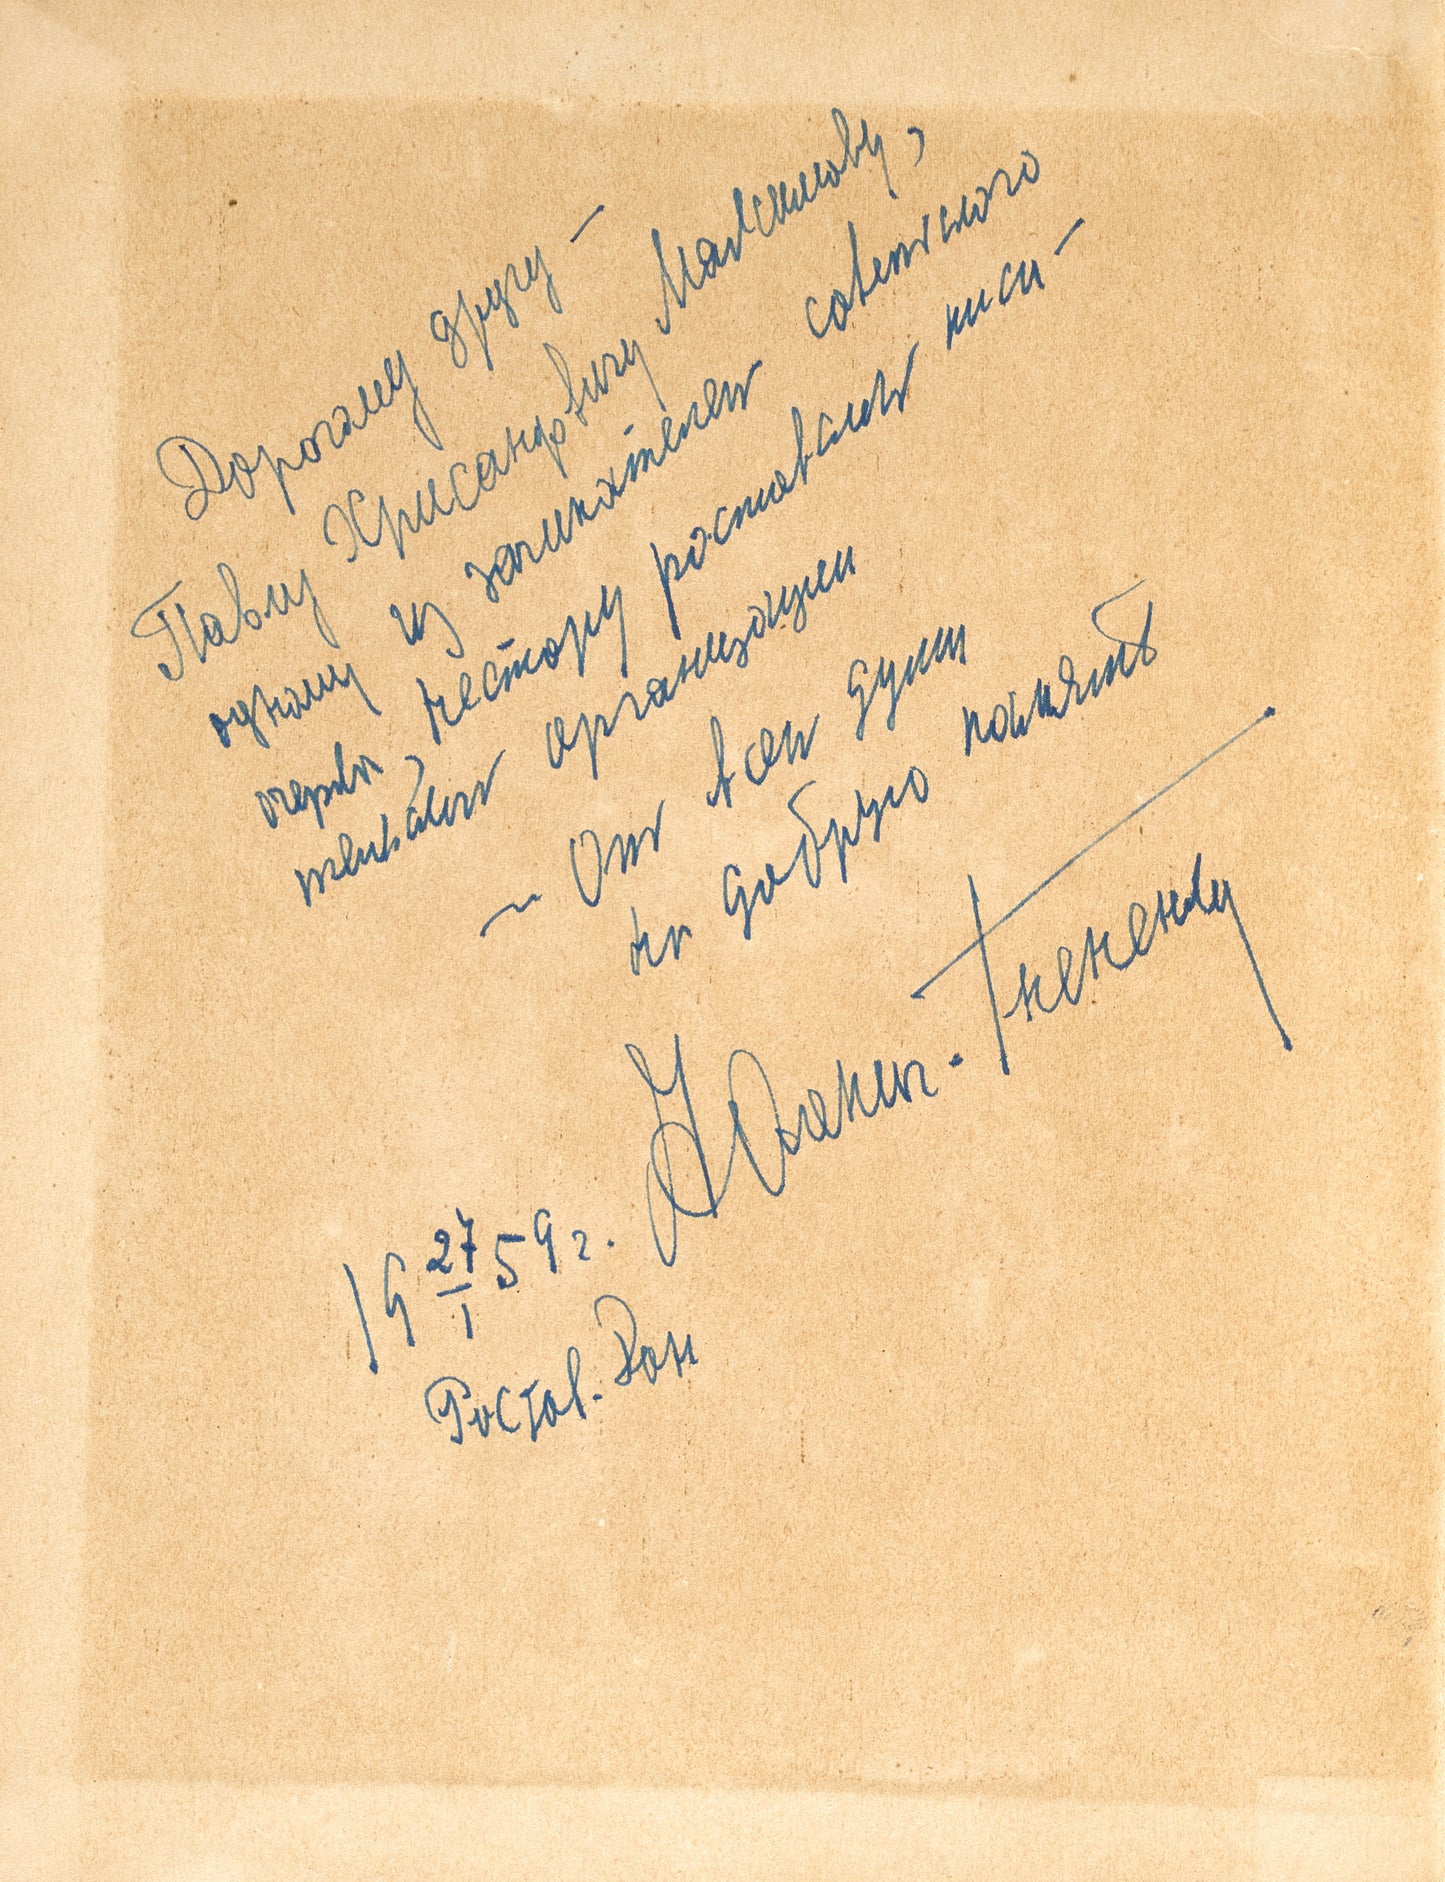 Дорогому другу —
Павлу Хрисандовичу Максимову,
одному из зачинателей советского
очерка, нестору ростовской писа-
тельской организации
— От всей души
на добрую память
19 27/I 59 г.
Ростов-Дон